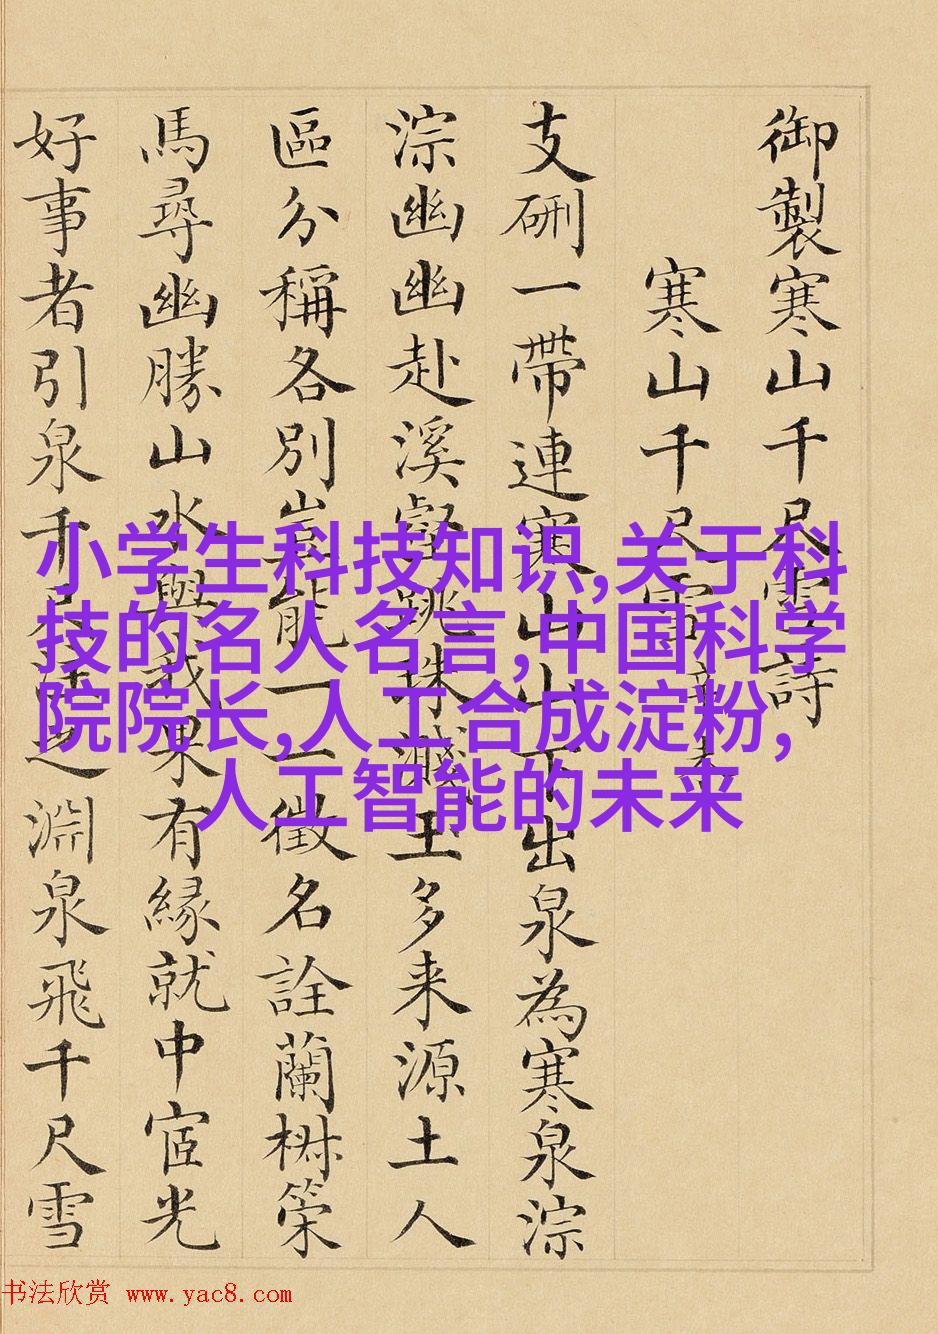 御製寒山千尺雪詩
寒山千尺雪
支硎一帶連寒山山下出泉為寒泉淙
淙幽幽赴溪壑跳珠濺玉多来源土人
區分稱各別豈能一一徵名詮蘭椒策
馬尋幽勝山水與我果有緣就中宧光
好事者引泉千尺
淵泉飛千尺雪
小学生科技知识,关于科
技的名人名言,中国科学
院院长,人工合成淀粉,
人工智能的未来
书法欣赏 www.yac8.com